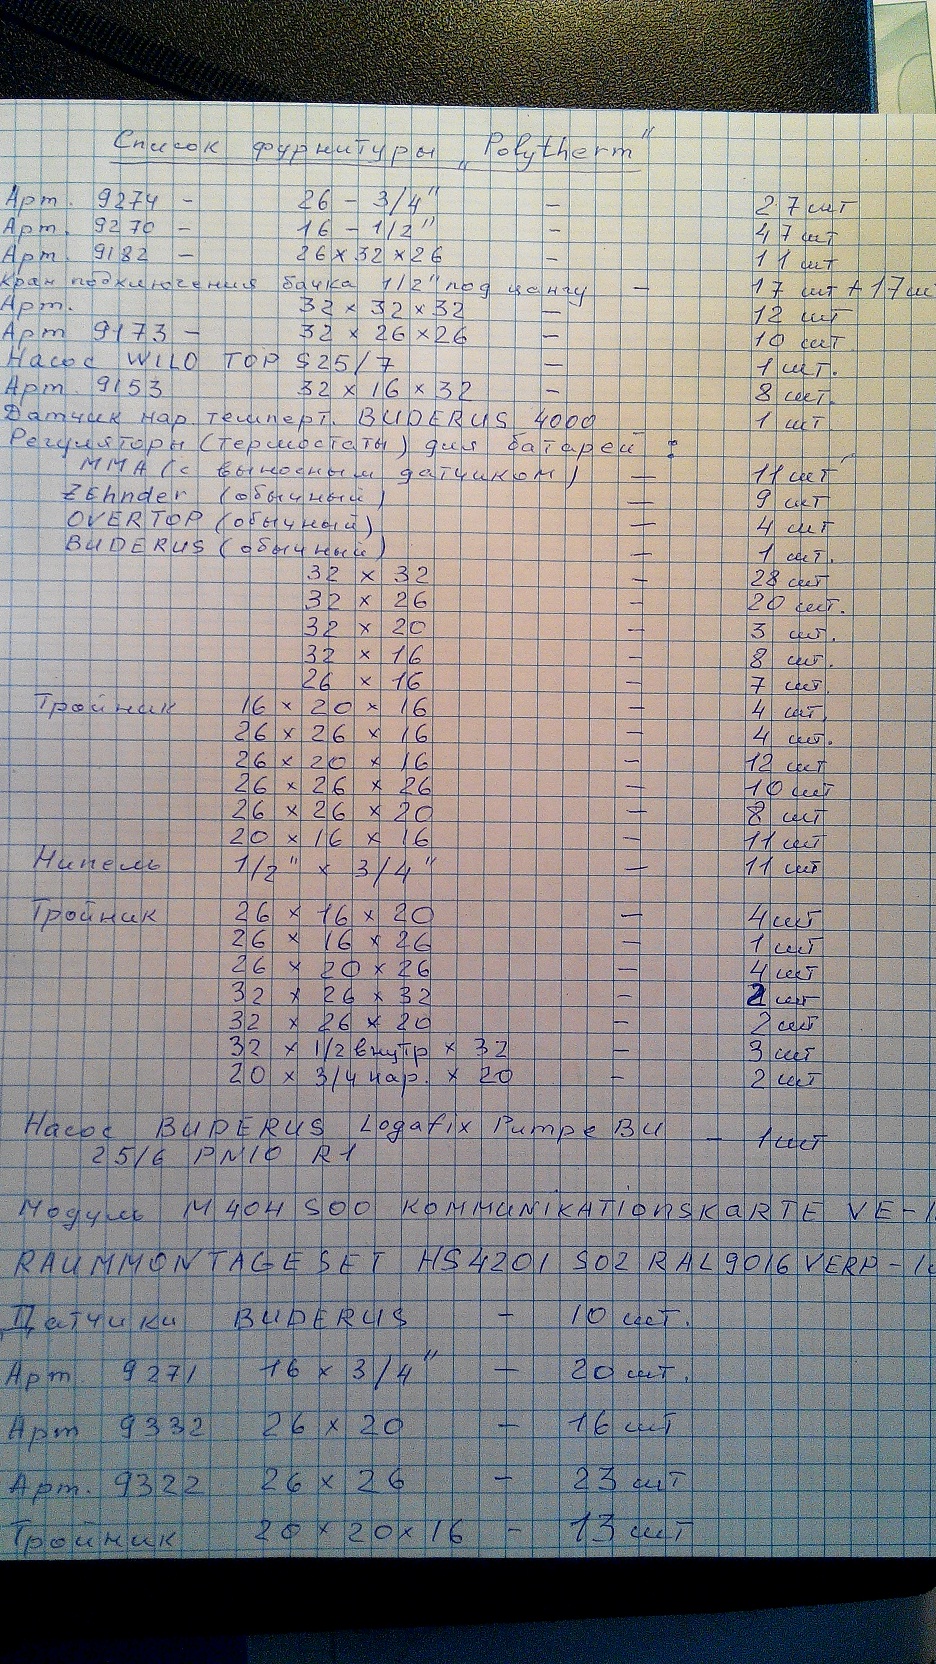 Список фурнитуры „Polytherm"
Арт. 9274 - 26 - 3/4" - 27 шт
Арт. 9270 - 16 - 1/2" - 47 шт
Арт. 9182 - 26 x 32 x 26 - 11 шт
Кран подключения бачка 1/2" под цангу - 17 шт + 17 ш
Арт. 32 x 32 x 32 - 12 шт
Арт 9173 - 32 x 26 x 26 - 10 шт
Насос WILO TOP S25/7 - 1 шт.
Арт. 9153 32 x 16 x 32 - 8 шт.
Датчик нар. темперт. BUDERUS 4000 - 1 шт
Регуляторы (термостаты) для батарей :
ММА (с выносным датчиком) - 11 шт
Zehnder (обычный) - 9 шт
OVERTOP (обычный) - 4 шт
BUDERUS (обычный) - 1 шт.
32 x 32 - 28 шт
32 x 26 - 20 шт.
32 x 20 - 3 шт.
32 x 16 - 8 шт.
26 x 16 - 7 шт.
Тройник 16 x 20 x 16 - 4 шт.
26 x 26 x 16 - 4 шт.
26 x 20 x 16 - 12 шт
26 x 26 x 26 - 10 шт
26 x 26 x 20 - 8 шт
20 x 16 x 16 - 11 шт
Нипель 1/2" x 3/4" - 11 шт
Тройник 26 x 16 x 20 - 4 шт
26 x 16 x 26 - 1 шт
26 x 20 x 26 - 4 шт
32 x 26 x 32 - 2 шт
32 x 26 x 20 - 2 шт
32 x 1/2 внутр x 32 - 3 шт
20 x 3/4 нар. x 20 - 2 шт
Насос BUDERUS Logafix Pumpe BU - 1 шт
25/6 PN10 R1
Модуль M404 S00 KOMMUNIKATIONSKARTE VE - 1
RAUMMONTAGESET HS4201 S02 RAL9016 VERP - 1
Датчики BUDERUS - 10 шт.
Арт 9271 16 x 3/4" - 20 шт.
Арт 9332 26 x 20 - 16 шт
Арт. 9322 26 x 26 - 23 шт
Тройник 20 x 20 x 16 - 13 шт